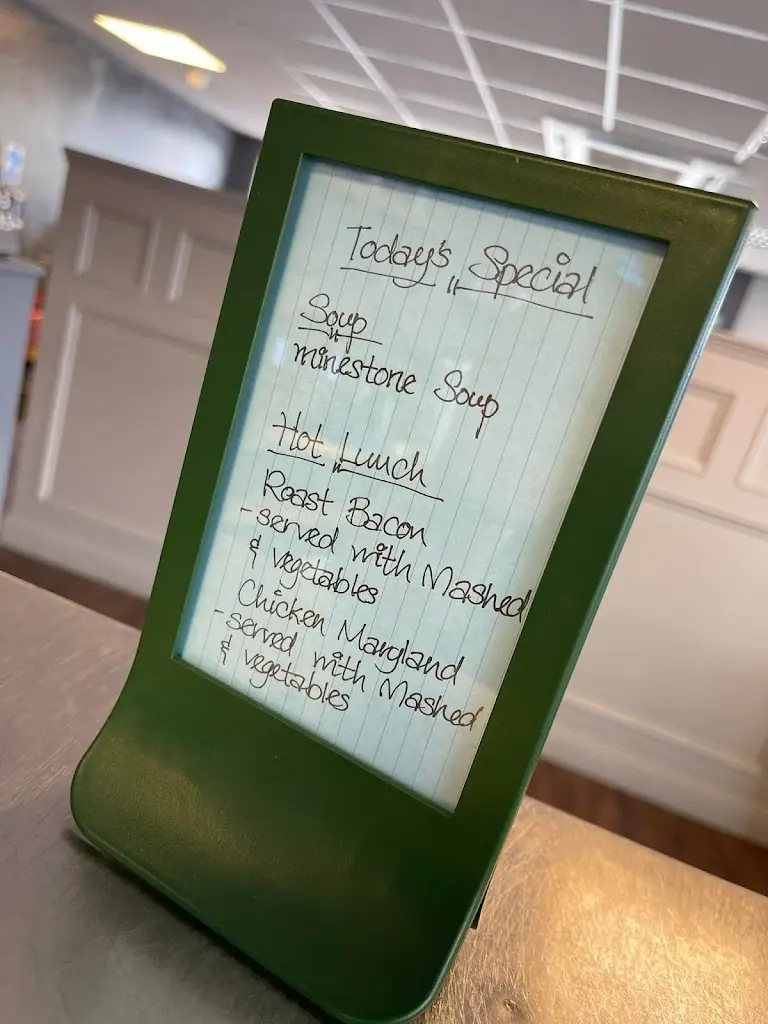 Today's Special
Soup
minestone Soup
Hot Lunch
Roast Bacon
- served with Mashed
& vegetables
Chicken Maryland
- served with Mashed
& vegetables